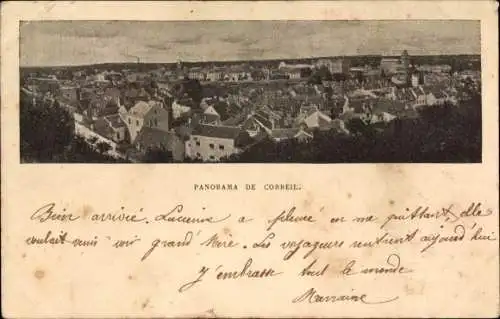 PANORAMA DE CORBEIL.
Bien arrivé. Lucienne a pleuré en me quittant, elle
voulait venir voir grand' Mère. Les voyageurs rentrent aujourd'hui
J'embrasse tout le monde
Marraine